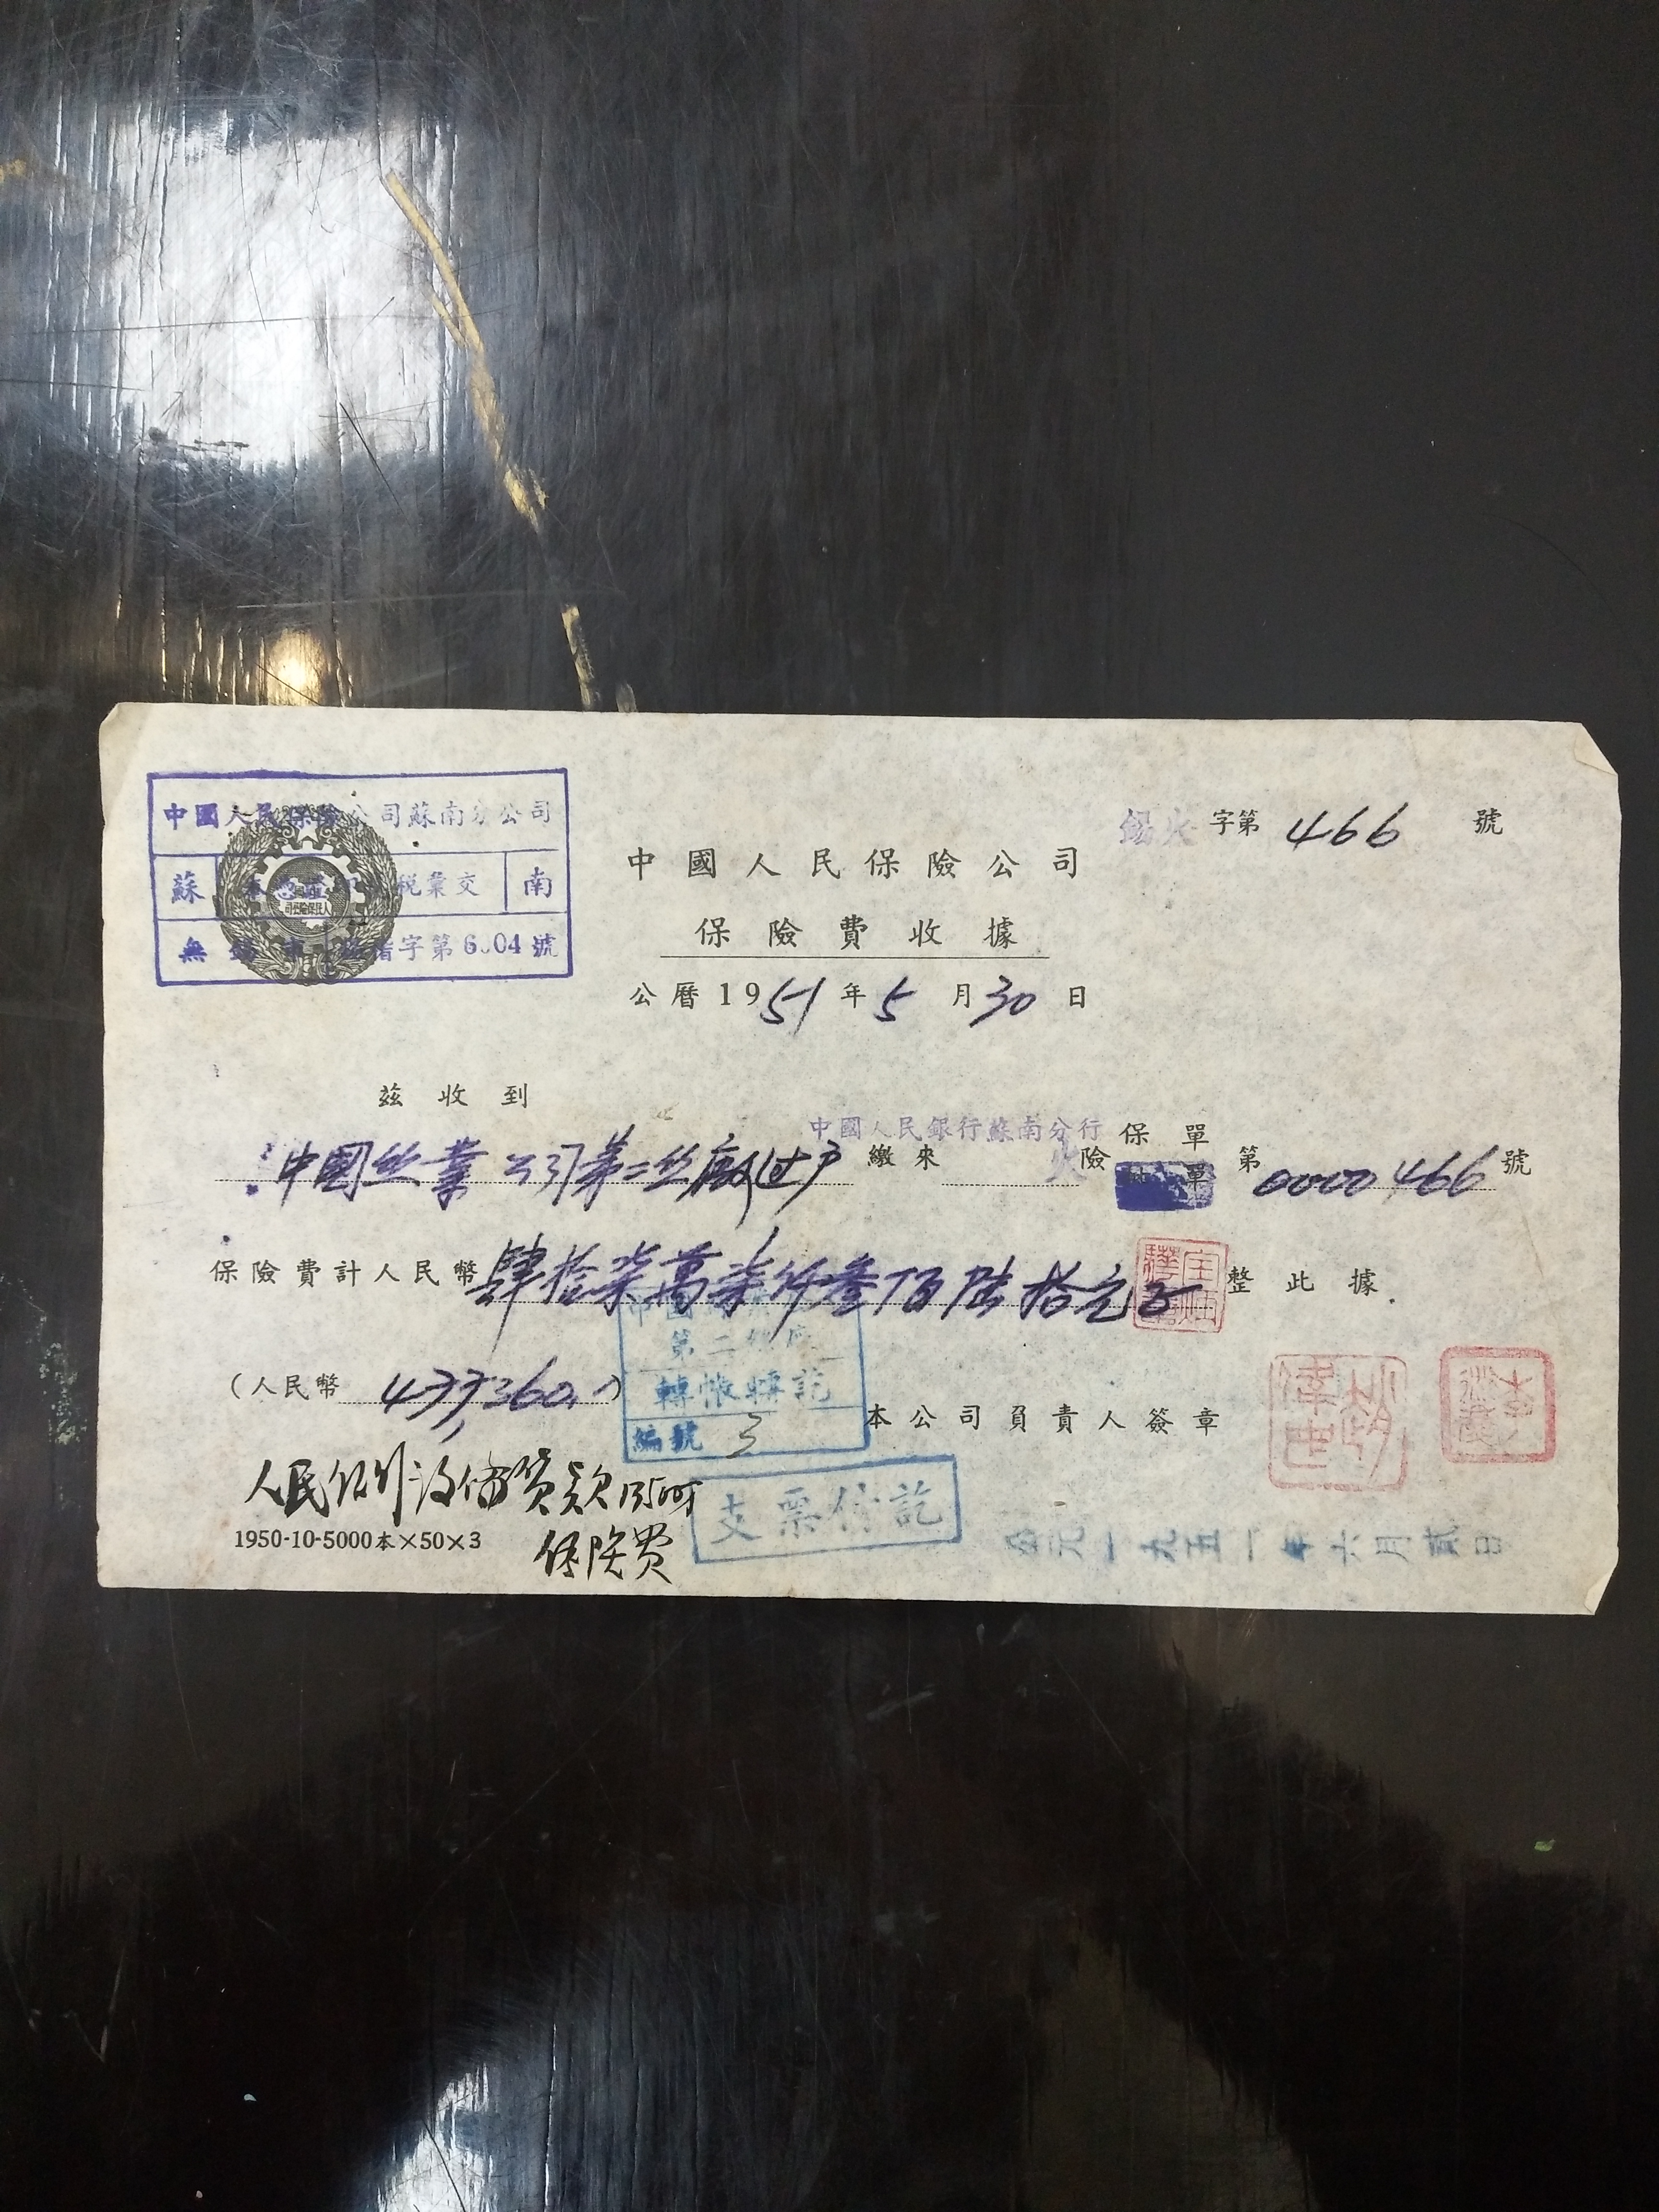 中國人民保險公司蘇南分公司
蘇 稅彙交 南
無 字第6 04號
錫火字第 466 號
中國人民保險公司
保險費收據
公曆1951年5月30日
茲收到
中國人民銀行蘇南分行
中國丝業公司第二丝廠(过户 繳來 火險 保單 單 第 0000466 號
保險費計人民幣肆拾柒萬柒仟叁佰陸拾元正 整此據
第二 廠
轉帳轉訖
編號 3
(人民幣 477,360.)
本公司負責人簽章
人民 款
保险费
支票付訖
1950-10-5000本×50×3
公元一九五一年六月貳日